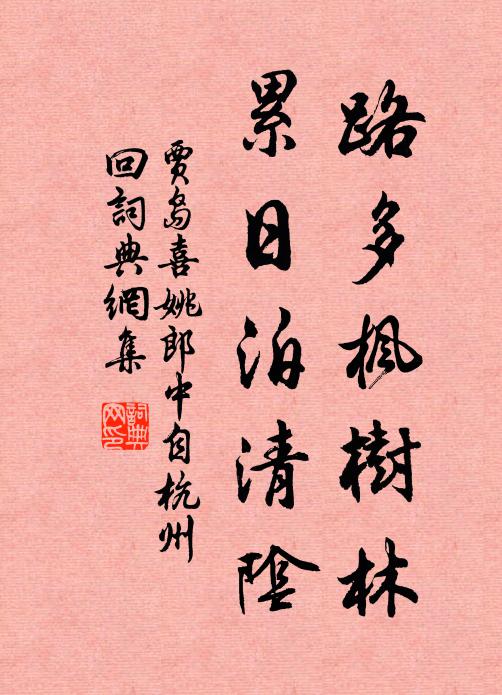 路多枫樹林
累日泊清陰
賈島喜姚郎中自杭州
回詞典網集
詞典
网印